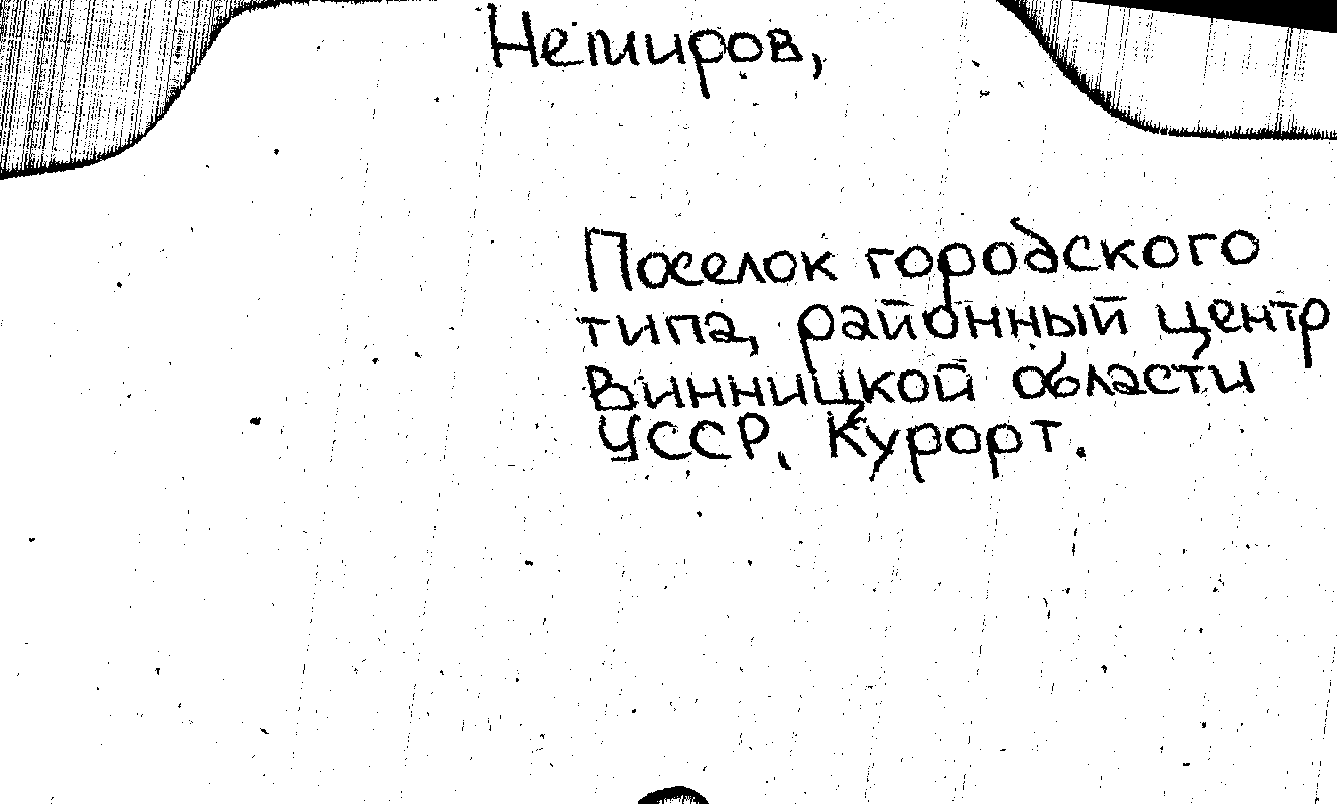 Немиров,
Поселок городского
типа, районный центр
Винницкой области
УССР. Курорт.